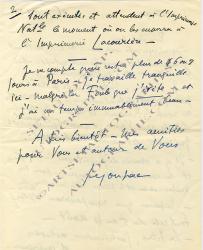 2
sont arrivées et attendent à l'Imprimerie
Natle le moment où on les mènera à
l'Imprimerie Lacourière.
Je ne compte guère rester plus de 6 ou 8
jours à Paris - je travaille tranquille
ici - malgré la
et
j'ai un temps immuablement beau -
A très bientôt - mes amitiés
pour Vous et autour de Vous
Segonzac